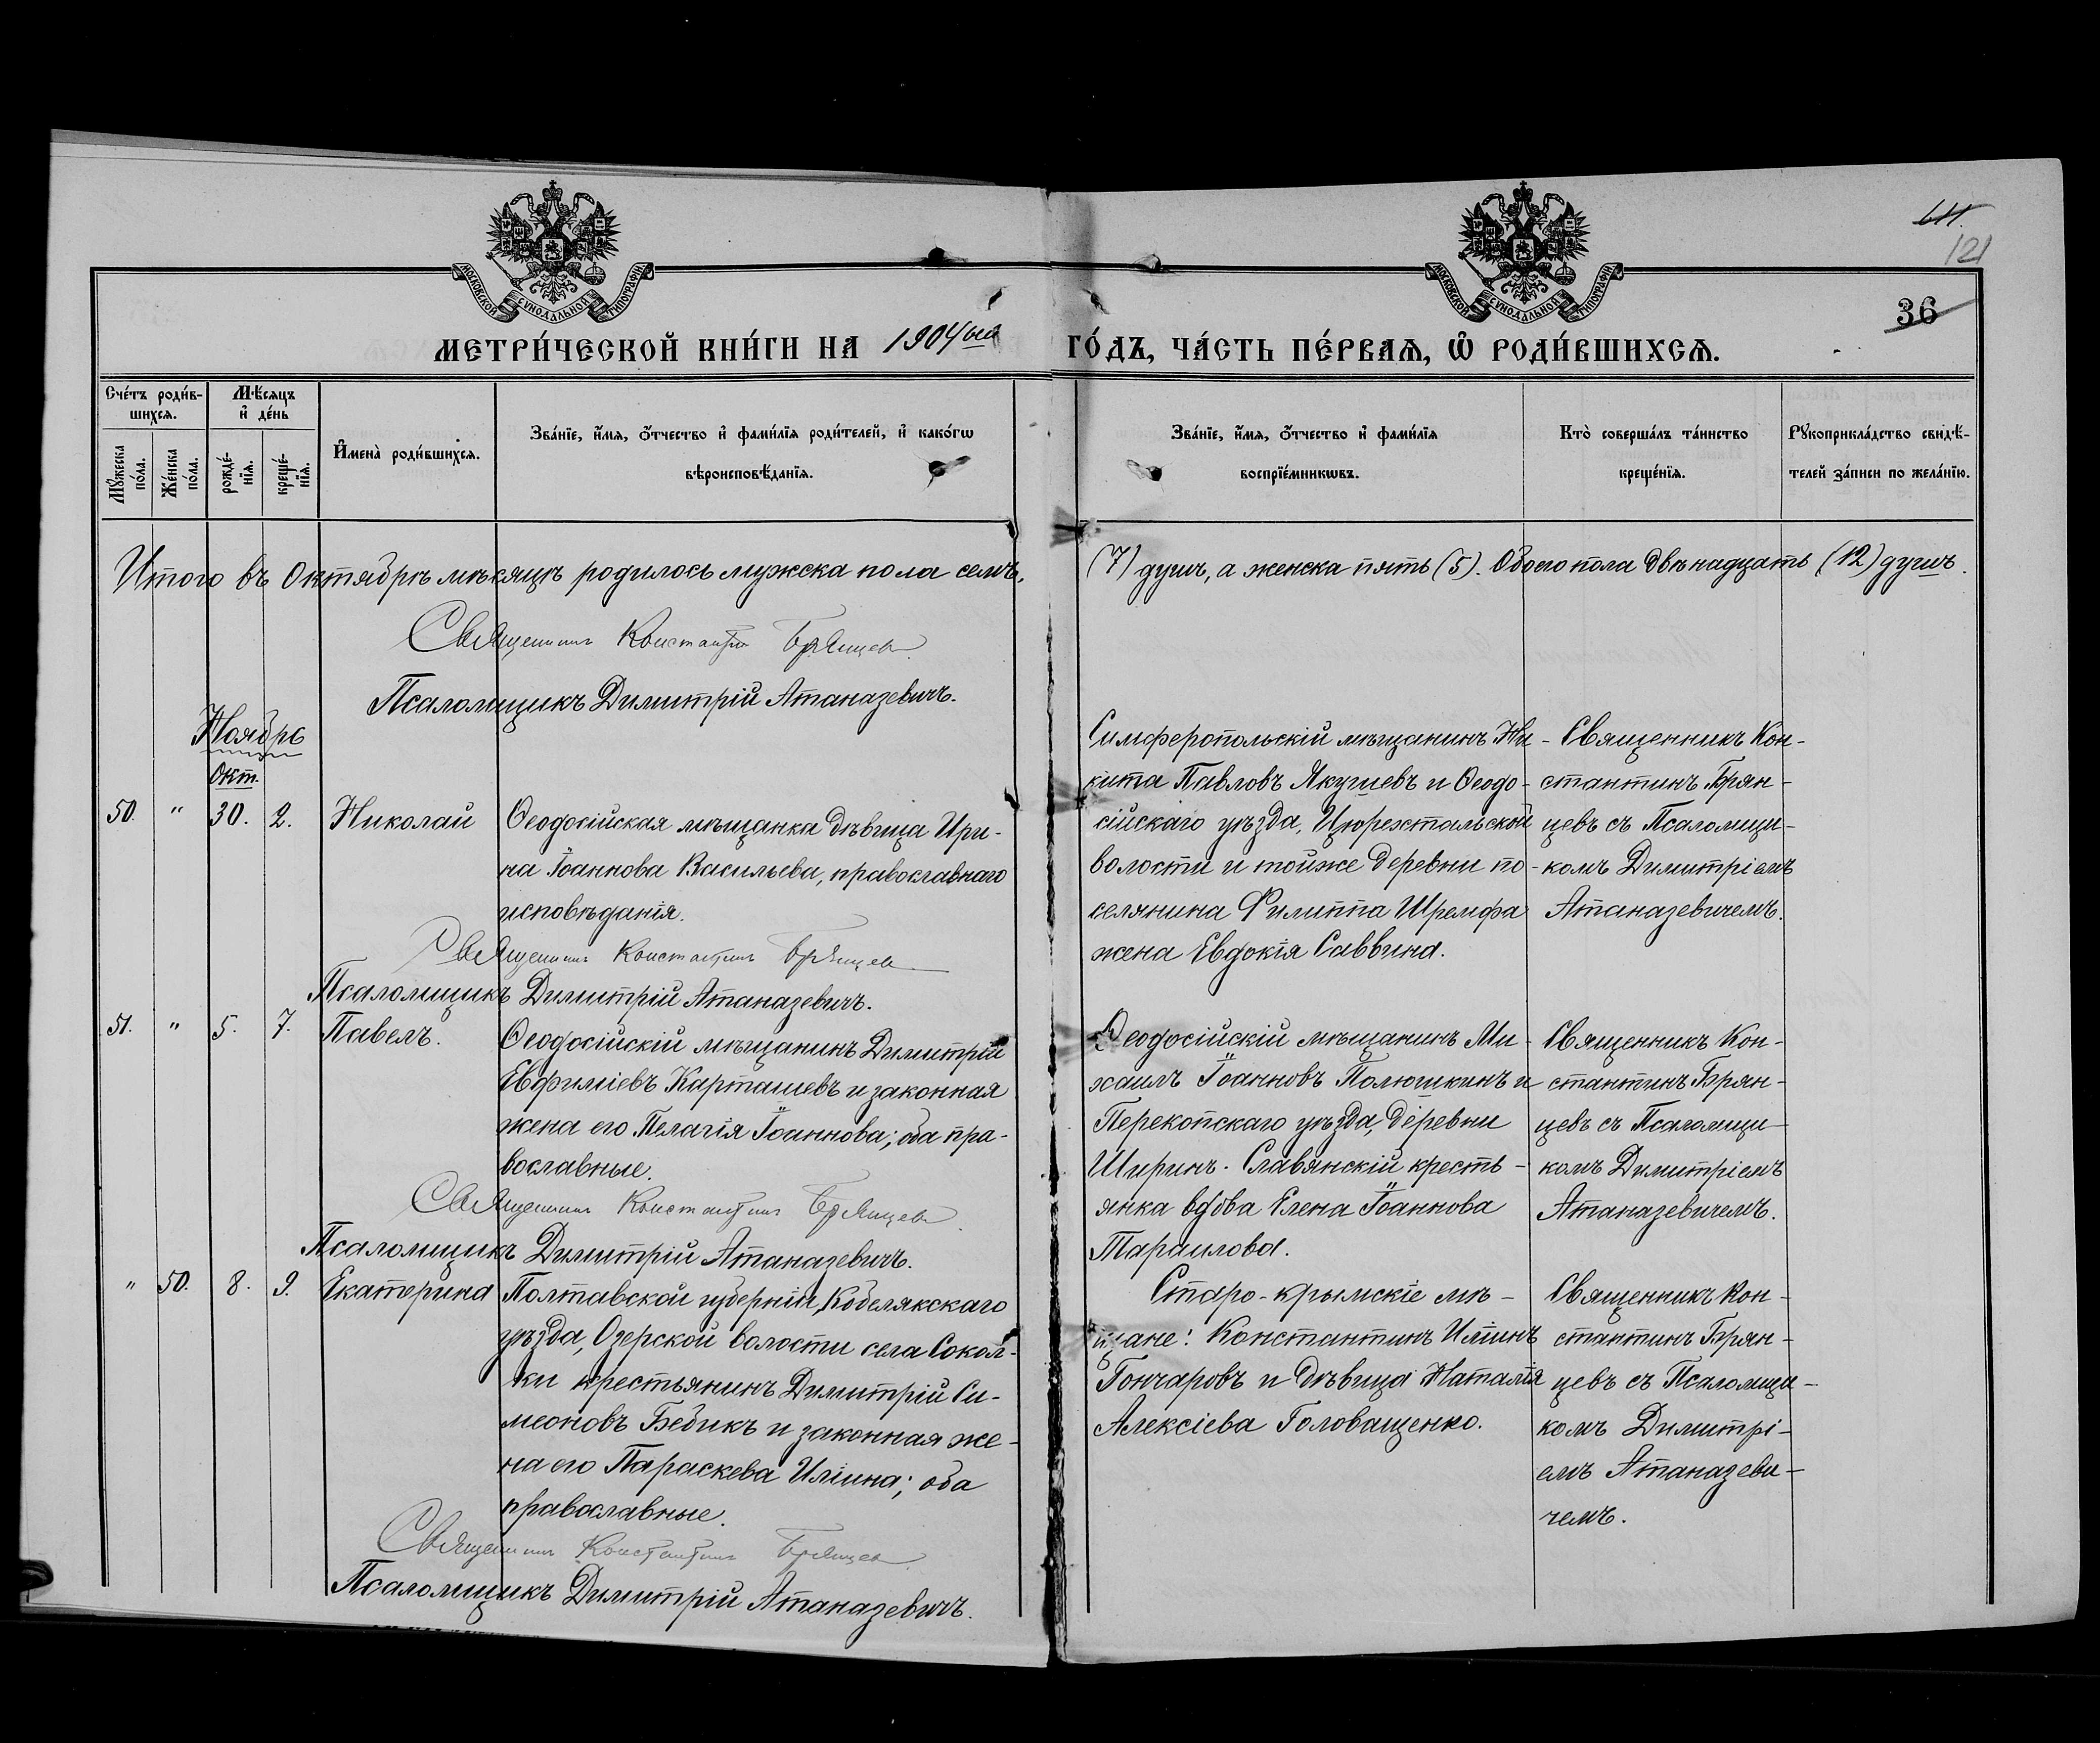 МОСКОВСКОЙ СѴНОДАЛЬНОЙ ТИПОГРАФІИ
МОСКОВСКОЙ СѴНОДАЛЬНОЙ ТИПОГРАФІИ
121
36
МЕТРИ́ЧЕСКОЙ КНИ́ГИ НА 1904ый ГО́ДЪ, ЧА́СТЬ ПЕ́РВАѦ, Ѡ҆ РОДИ́ВШИХСѦ.
Сче́тъ роди́в-
шихсѧ.
Мѣ́сяцъ
и҆ де́нь
Мꙋ́жеска
по́ла.
Же́нска
по́ла.
рожде́-
нїѧ.
креще́-
нїѧ.
И҆мена̀ роди́вшихсѧ.
Зва́нїе, и҆́мѧ, ѻ҆́тчество и҆ фами́лїѧ роди́телей, и҆ како́гѡ
вѣроисповѣ́данїѧ.
Зва́нїе, и҆́мѧ, ѻ҆́тчество и҆ фами́лїѧ
воспрїе́мникѡвъ.
Кто̀ соверша́лъ та́инство
креще́нїѧ.
Рꙋкоприкла́дство свидѣ́-
телей за́писи по жела́нїю.
Итого въ Октябрѣ мѣсяцѣ родилось мужска пола семь (7) душъ, а женска пять (5). Обоего пола двѣнадцать (12) душъ.
Священникъ Константинъ Брянцевъ.
Псаломщикъ Димитрій Атаназевичъ.
Ноябрь
Окт.
50. " 30. 2. Николай
Ѳеодосійская мѣщанка дѣвица Ири-
на Іоаннова Васильева, православнаго
исповѣданія.
Симферопольскій мѣщанинъ Ни-
кита Павловъ Якушевъ и Ѳеодо-
сійскаго уѣзда, Цюрехстальской
волости и тойже деревни по-
селянина Филиппа Шремфа
жена Евдокія Саввина.
Священникъ Кон-
стантинъ Брян-
цевъ съ Псаломщи-
комъ Димитріемъ
Атаназевичемъ.
Священникъ Константинъ Брянцевъ
Псаломщикъ Димитрій Атаназевичъ.
51. " 5. 7. Павелъ.
Ѳеодосійскій мѣщанинъ Димитрій
Евфиміевъ Карташевъ и законная
жена его Пелагія Іоаннова; оба пра-
вославные.
Ѳеодосійскій мѣщанинъ Ми-
хаилъ Іоанновъ Полюшкинъ и
Перекопскаго уѣзда, деревни
Ширинъ. Славянскій кресть-
янка вдова Елена Іоаннова
Тараилова.
Священникъ Кон-
стантинъ Брян-
цевъ съ Псаломщи-
комъ Димитріемъ
Атаназевичемъ.
Священникъ Константинъ Брянцевъ.
Псаломщикъ Димитрій Атаназевичъ.
" 50. 8. 9. Екатерина
Полтавской губерніи, Кобелякскаго
уѣзда, Озерской волости села Сокол-
ки крестьянинъ Димитрій Си-
меоновъ Бедикъ и законная же-
на его Параскева Иліина; оба
православные.
Старо-крымскіе мѣ-
щане: Константинъ Иліинъ
Гончаровъ и дѣвица Наталія
Алексіева Головащенко.
Священникъ Кон-
стантинъ Брян-
цевъ съ Псаломщи-
комъ Димитрі-
емъ Атаназеви-
чемъ.
Священникъ Константинъ Брянцевъ.
Псаломщикъ Димитрій Атаназевичъ.